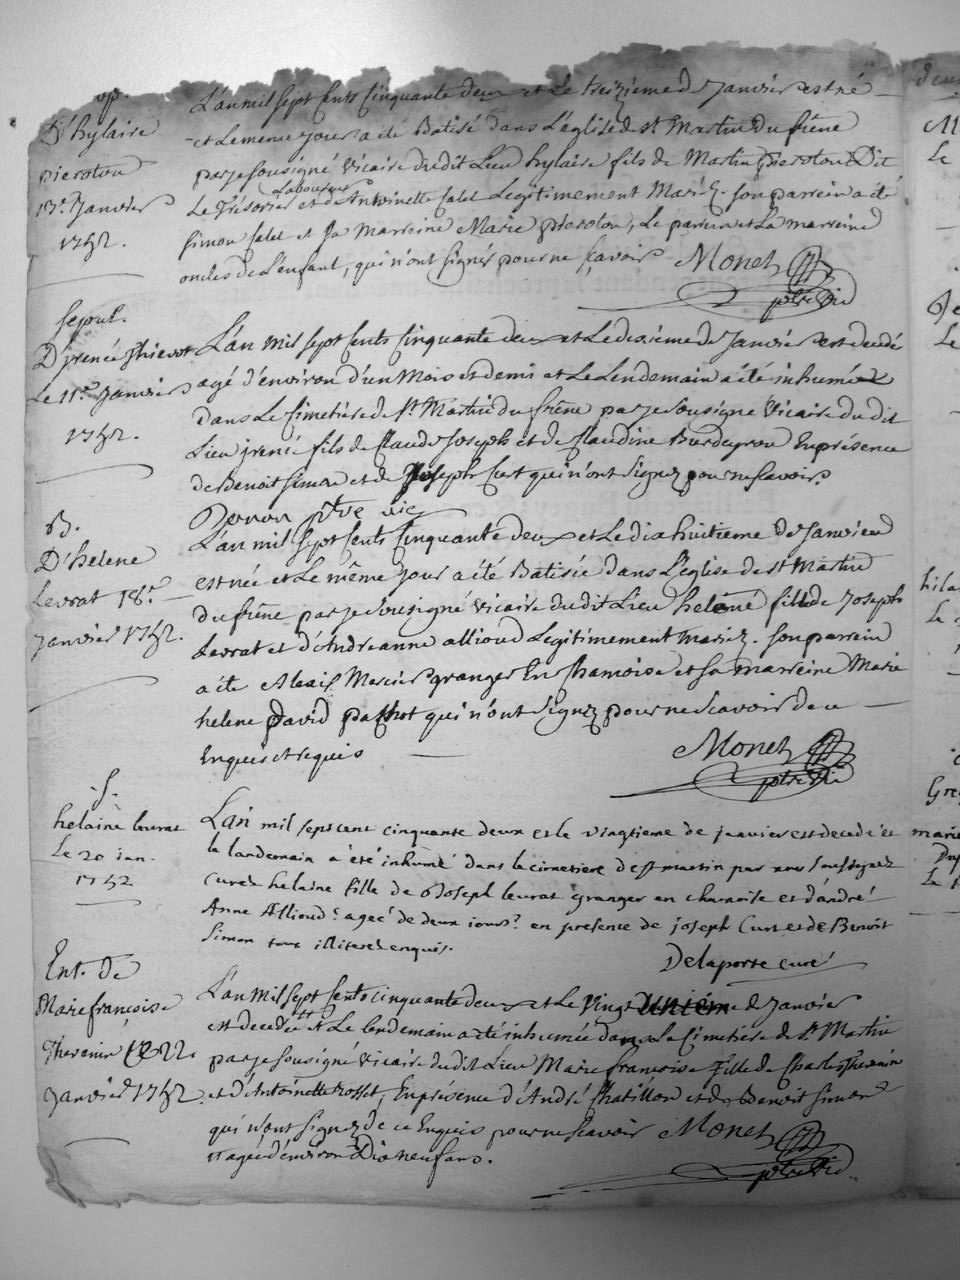 Bap.
D'hylaire
pierotou
13e. Janvier
1752.
L'an mil sept cents cinquante deux et le treizieme de Janvier est né
et le meme jour a été Batisé dans L'église de st Martin du frêne
par je sousigné vicaire dudit Lieu hylaire fils de Martin pierotou Dit
Laboureur
Le Trésorier et d'Antoinette salet Legitimement Mariéz. son parrein a été
simon salet et sa Marreine Marie pierotou, Le parrein et La marreine
oncles de L'enfant, qui n'ont signés pour ne sçavoir Monet
ptre Vic
sepul.
D'jrenée thievot
Le 11e. Janvier
1752.
L'an mil sept cents cinquante deux et Le dixième de Janvier est decedé
agé d'environ d'un Mois et demi et Le Lendemain a été inhumé
dans Le Cimetière de st. Martin du frêne par je sousigné Vicaire du dit
Lieu jrenée fils de Claude Joseph et de Claudine Burdeyrou En présence
de Benoit simon et de Joseph Curt qui n'ont Signéz pour ne sçavoir.
ptre vic
B.
D'hélène
Levrat 18e.
janvier 1752.
L'an mil sept cents cinquante deux et Le dixhuitieme de Janvier
est née et Le même jour a été Batisée dans L'eglise de st Martin
du frêne par je sousigné vicaire du dit Lieu heléne fille de Joseph
Levrat et d'Andreanne allioud Legitimement Mariéz. son parrein
a été Alexis Mercier granger En Chamoise et sa marreine Marie
helene David pachot qui n'ont Signéz pour ne sçavoir de ce
Enquis et requis
Monet
ptre Vic
S.
helaine leurat
Le 20 ian.
1752
L'an mil sept cent cinquante deux et le vingtieme de janvier est decedé et
le landemain a été inhumé dans la cimetiere de st martin par nous soussigné
curé helaine fille de Joseph leurat granger en chamoise et d'andré
Anne Allioud agée de deux iours en presence de joseph Curt et de Benoit
Simon tous illiteres enquis.
Delaporte curé
Ent. de
Marie françoise
Thevenin Le 22
janvier 1752.
L'an Mil sept cents cinquante deux et Le Vingt unième de Janvier
est decedée et Le lendemain a été inhumée dans Le Cimetière de st. Martin
par je sousigné vicaire du dit Lieu Marie françoise fille de Charle Thevenin
et d'Antoinette Rosset, En présence d'André Chatillon et de Benoit simon
qui n'ont signéz de ce Enquis pour ne sçavoir Monet
et agée d'environ Dixneuf ans.
ptre Vic